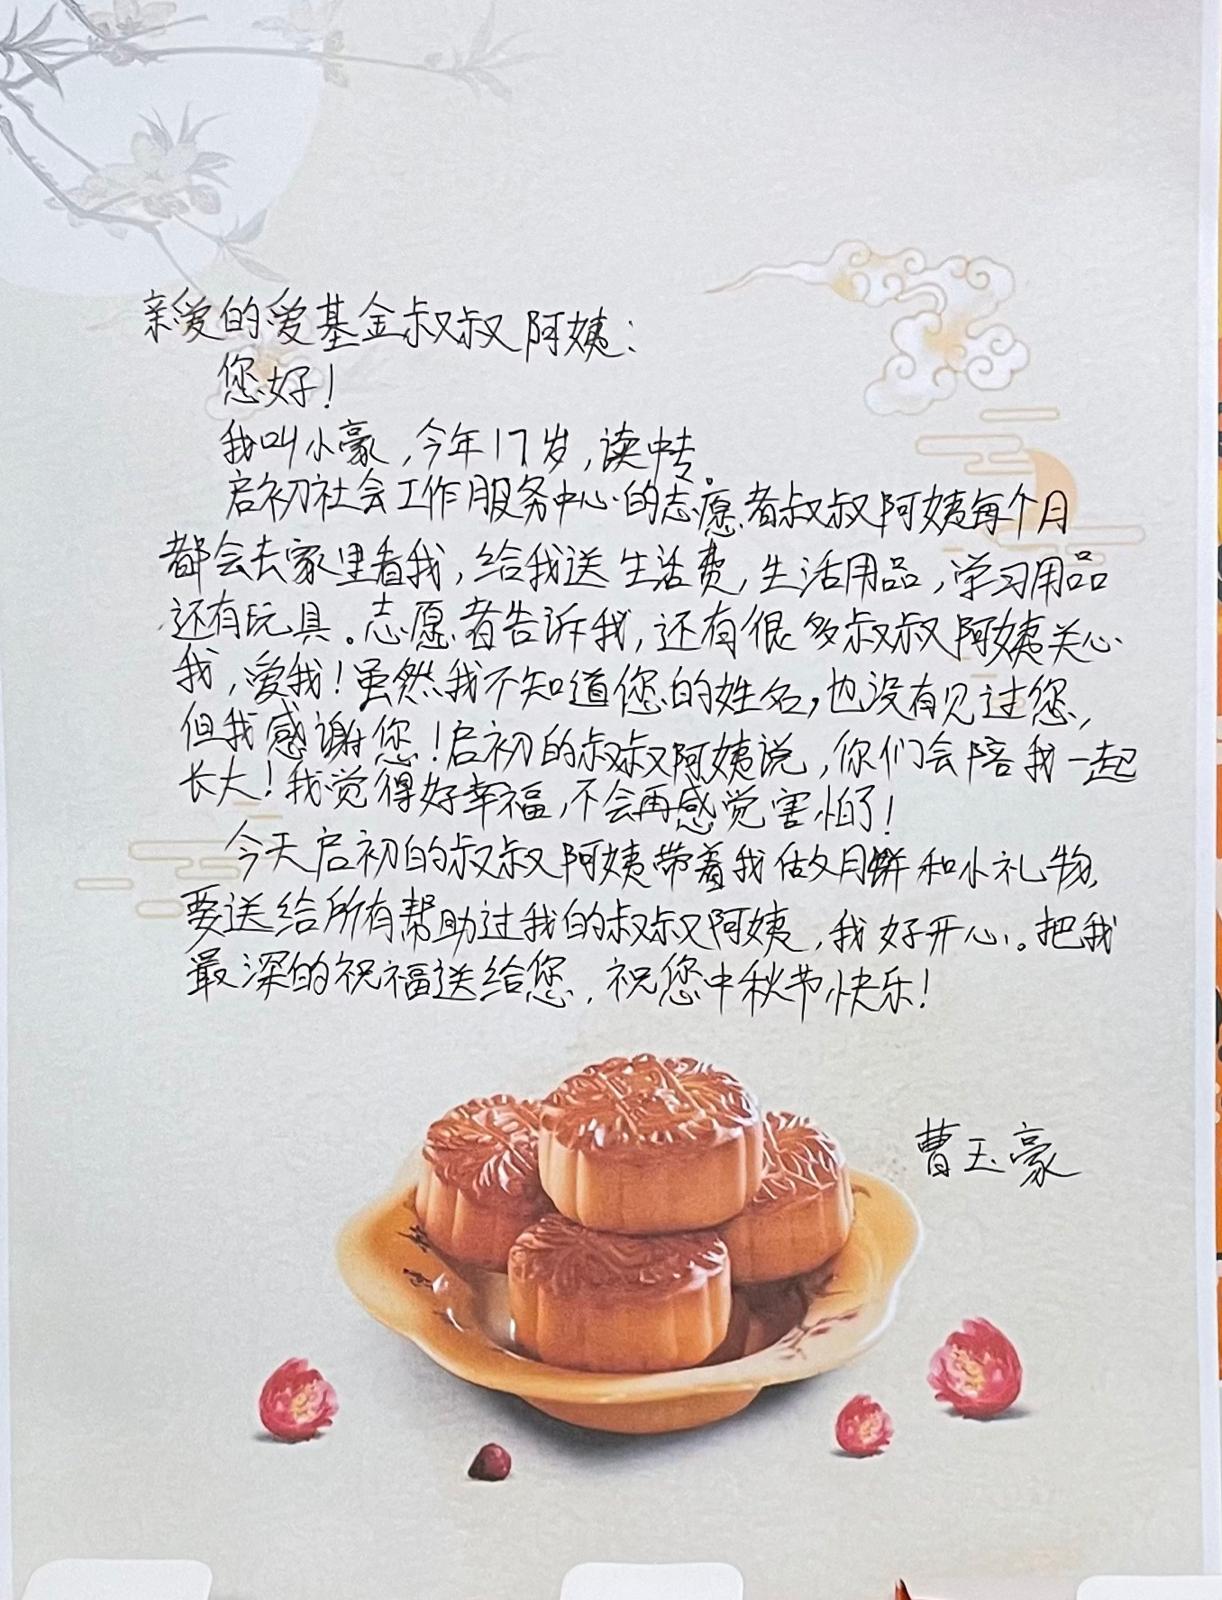 亲爱的爱基金叔叔阿姨：
您好！
我叫小豪，今年17岁，读中专。
启初社会工作服务中心的志愿者叔叔阿姨每个月
都会去家里看我，给我送生活费，生活用品，学习用品
还有玩具。志愿者告诉我，还有很多叔叔阿姨关心
我，爱我！虽然我不知道您的姓名，也没有见过您，
但我感谢您！启初的叔叔阿姨说，你们会陪我一起
长大！我觉得好幸福，不会再感觉害怕了！
今天启初的叔叔阿姨带着我做月饼和小礼物，
要送给所有帮助过我的叔叔阿姨，我好开心。把我
最深的祝福送给您，祝您中秋节快乐！
曹玉豪